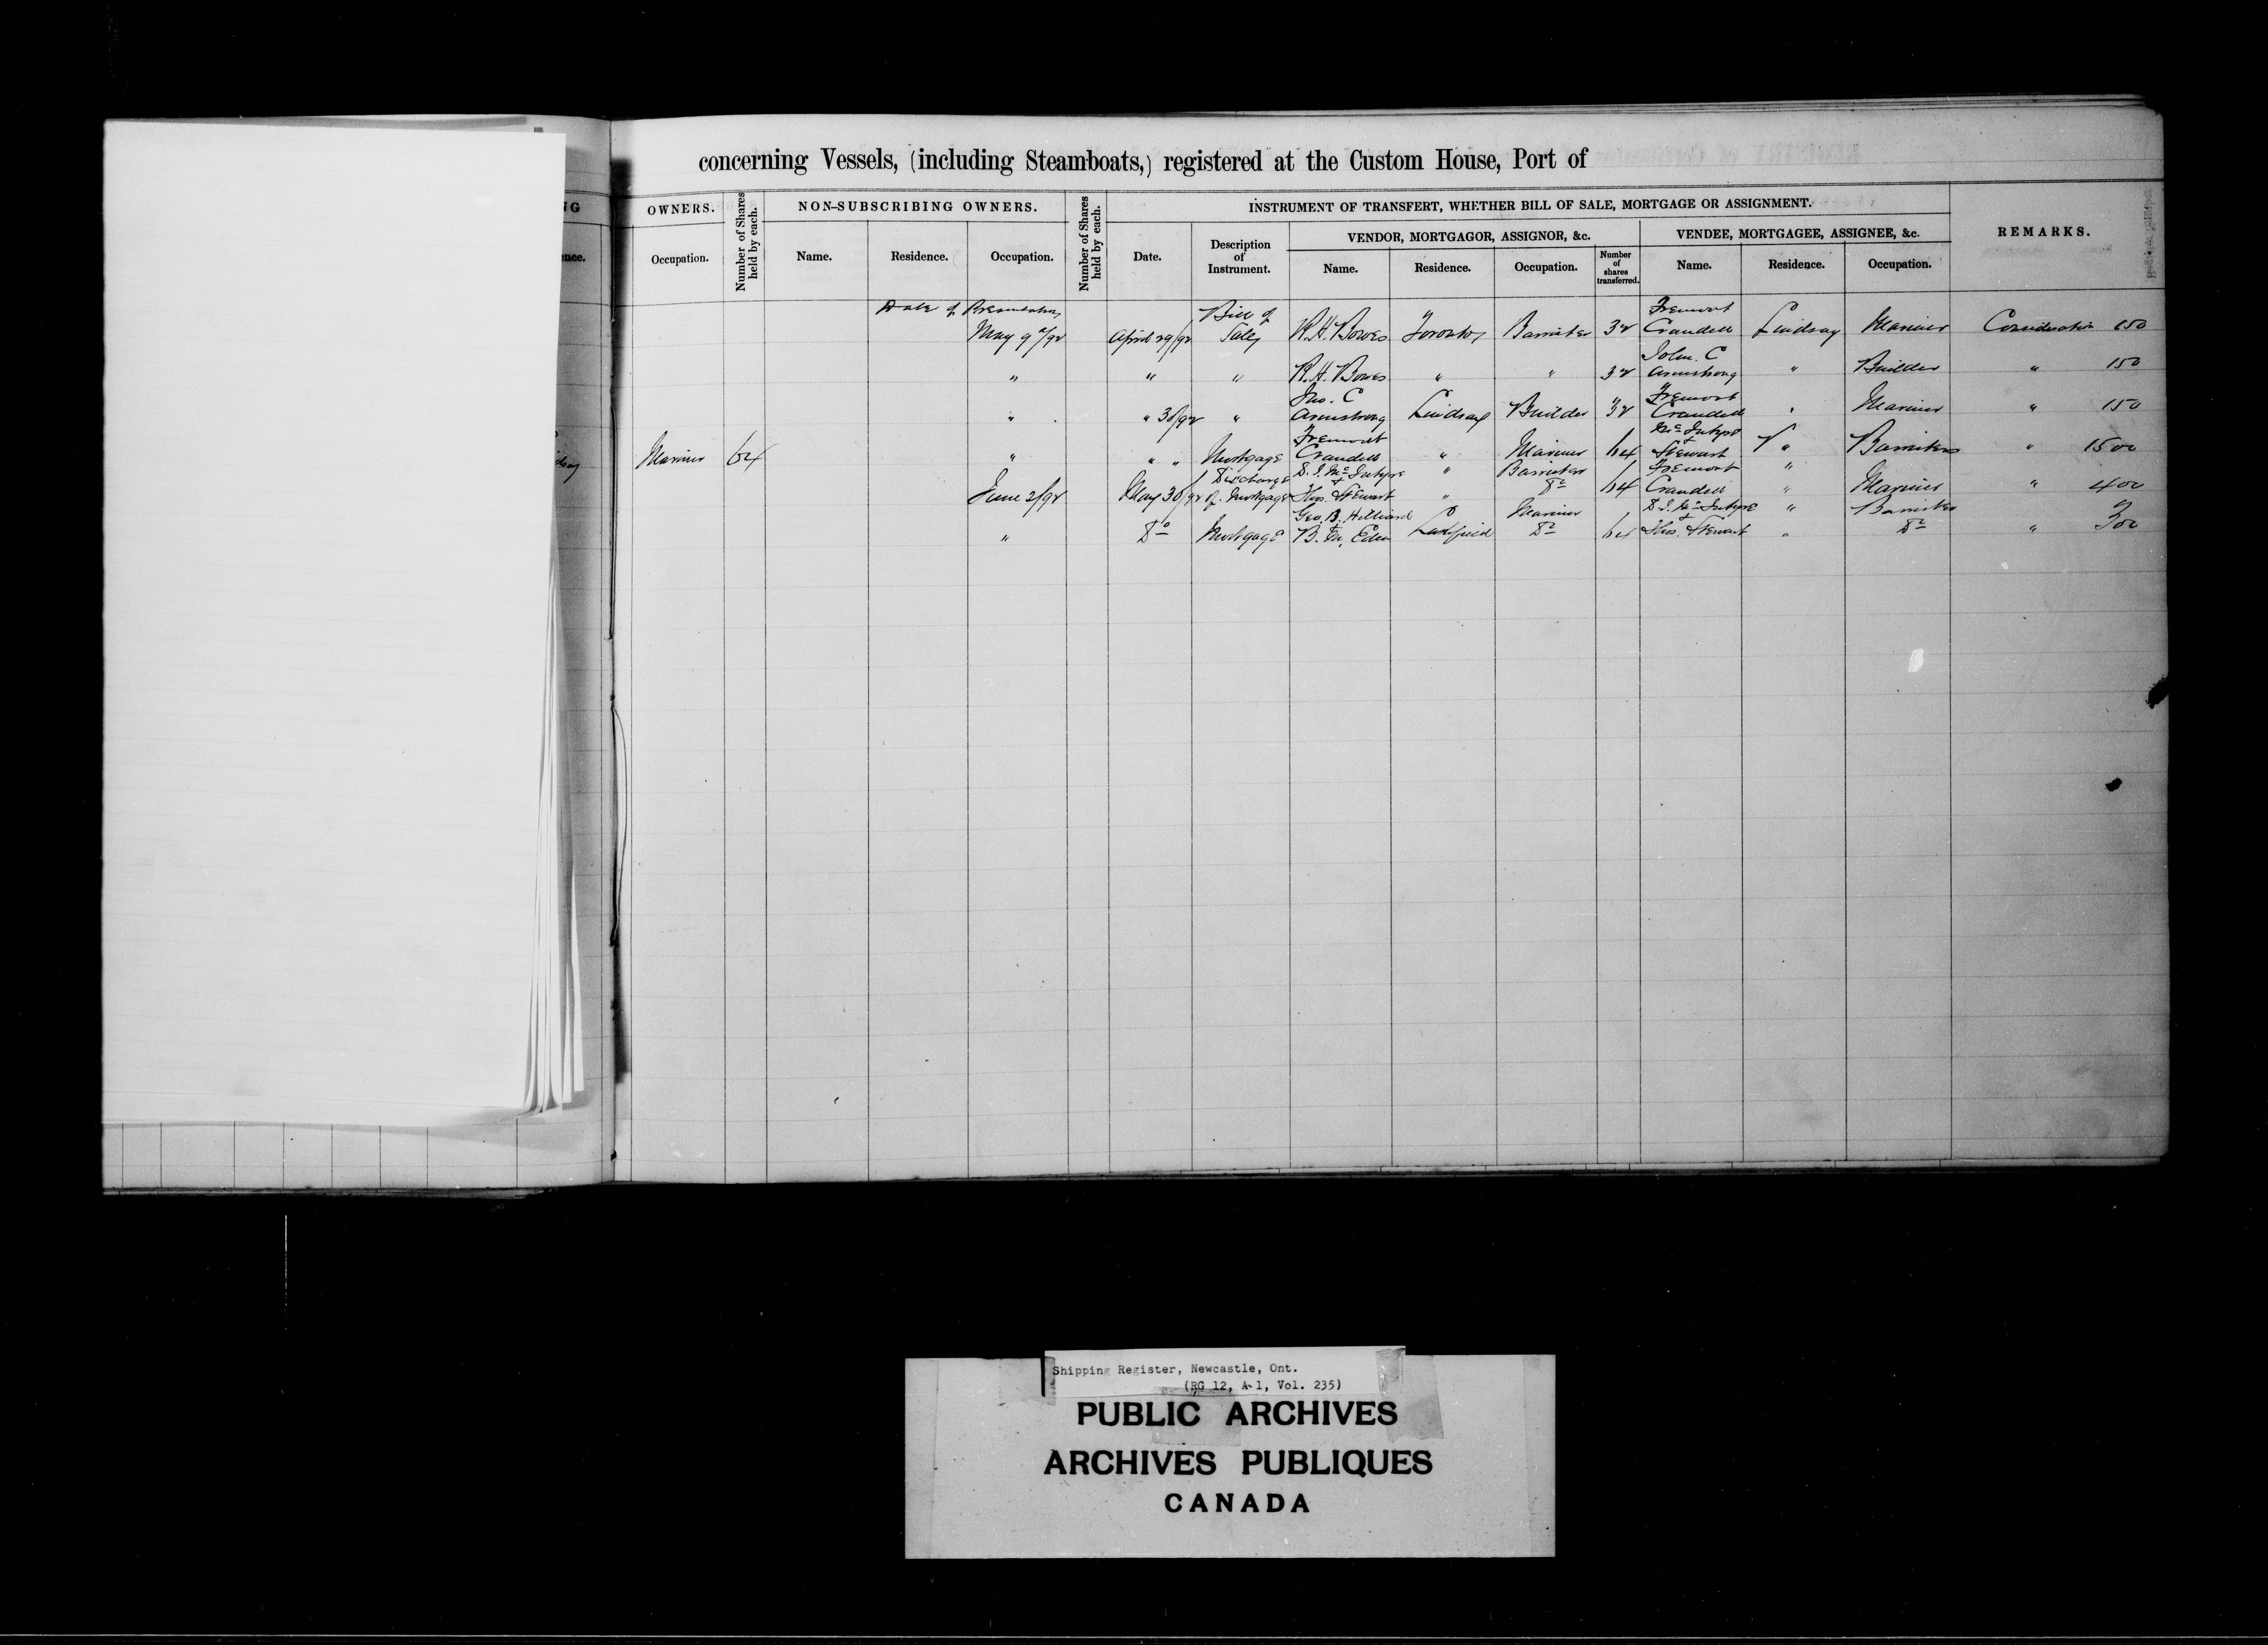 concerning Vessels, (including Steamboats,) registered at the Custom House, Port of
NG
OWNERS.
Number of Shares held by each.
NON-SUBSCRIBING OWNERS.
Number of Shares held by each.
INSTRUMENT OF TRANSFERT, WHETHER BILL OF SALE, MORTGAGE OR ASSIGNMENT.
REMARKS.
VENDOR, MORTGAGOR, ASSIGNOR, &c.
VENDEE, MORTGAGEE, ASSIGNEE, &c.
ence.
Occupation.
Name.
Residence.
Occupation.
Date.
Description of Instrument.
Name.
Residence.
Occupation.
Number of shares transferred.
Name.
Residence.
Occupation.
Date of Presentation
Bill of
Fremont
May 9/92 April 29/92 Sale R.H. Bowes Toronto Barrister 32 Crandell Lindsay Mariner Consideration 150
John. C
" " " R.H. Bowes " " 32 Armstrong " Builder " 150
Jno. C Fremont
" " 30/92 " Armstrong Lindsay Builder 32 Crandell " Mariner " 150
Fremont McIntyre +
Mariner 64 " " " Mortgage Crandell " Mariner 64 Stewart " Barristers " 1500
Discharge D. J. McIntyre + " Barrister Fremont "
June 2/92 May 30/92 of Mortgage Thos. Stewart " Do 64 Crandell " Mariner " 400
Geo. B. Hilliard Mariner D. J. McIntyre + " Barrister
" Do Mortgage B. M. Eden Lakefield Do 64 Thos. Stewart " Do " 300
Shipping Register, Newcastle, Ont.
(RG 12, A-1, Vol. 235)
PUBLIC ARCHIVES
ARCHIVES PUBLIQUES
CANADA